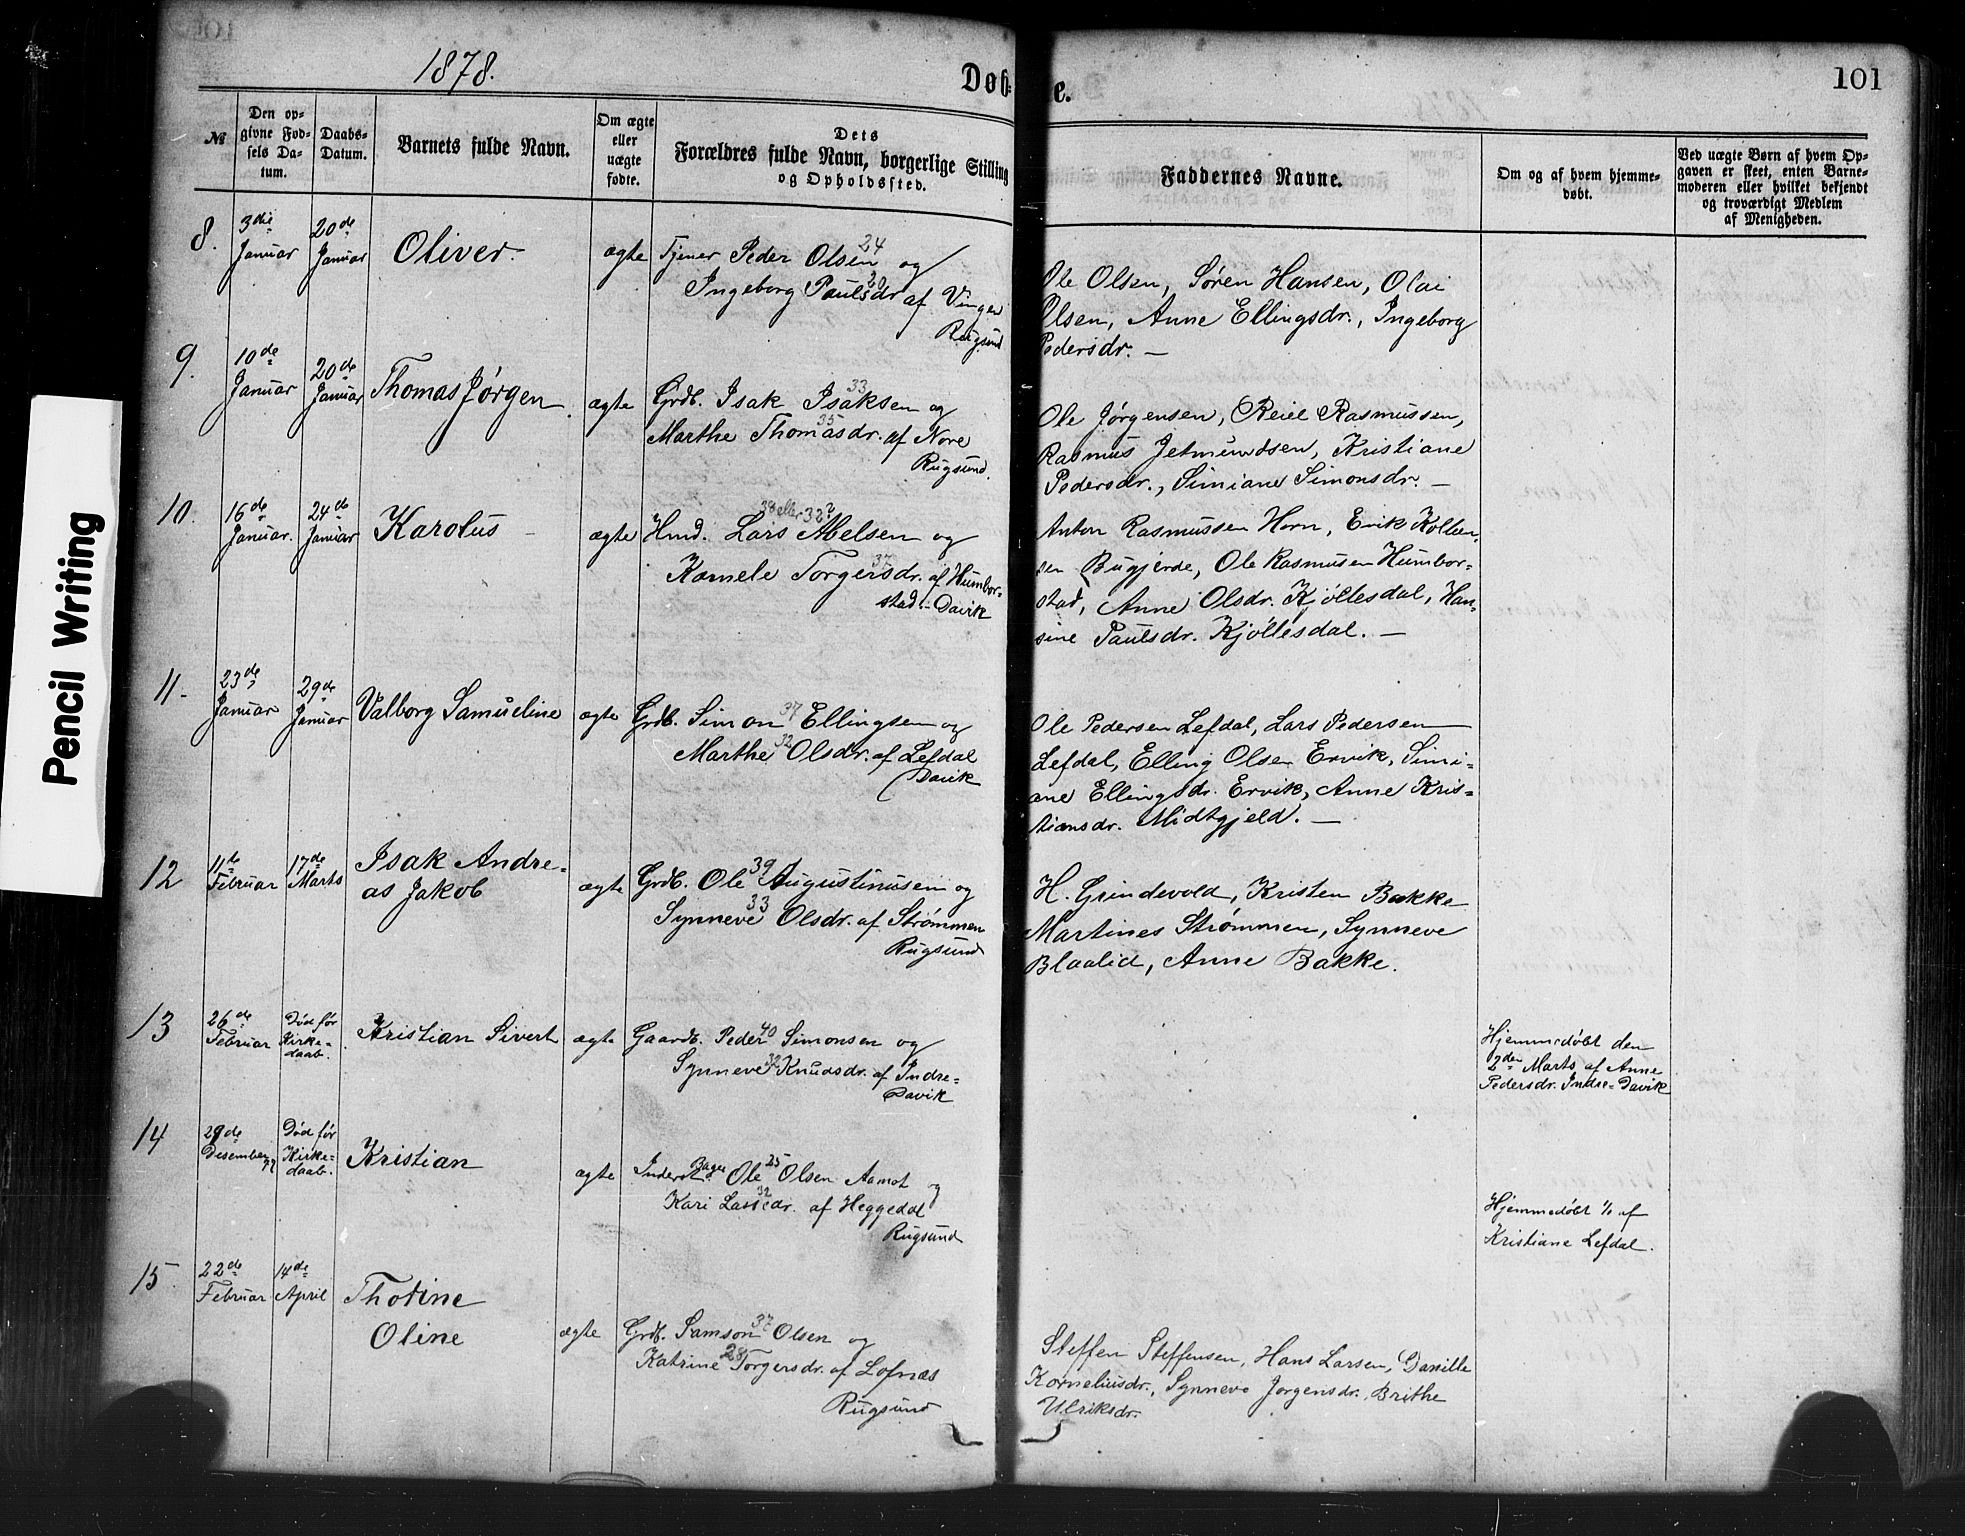 1878.
Døb-
e.
101
Pencil Writing
№
Den op-
givne Fød-
sels Da-
tum.
Daabs-
Datum.
Barnets fulde Navn.
Om ægte
eller
uægte
fødte.
Dets
Forældres fulde Navn, borgerlige Stilling
og Opholdssted.
Faddernes Navne.
Om og af hvem hjemme-
døbt.
Ved uægte Børn af hvem Op-
gaven er skeet, enten Barne-
moderen eller hvilket bekjendt
og troværdigt Medlem
af Menigheden.
8.
3die
Januar
20de
Januar
Oliver.
ægte
Tjener Peder Olsen 24 og
Ingeborg Paulsdr 20 af Vingen
Rugsund
Ole Olsen, Søren Hansen, Olai
Olsen, Anne Ellingsdr., Ingeborg
Pedersdr. —
9.
10de
Januar
20de
Januar
Thomas Jørgen.
ægte
Grdb. Isak Isaksen 33 og
Marthe Thomasdr. 35 af Nore
Rugsund.
Ole Jørgensen, Reiel Rasmussen,
Rasmus Jetmundsen, Kristiane
Pedersdr., Simiane Simonsdr. —
10.
16de
Januar.
24de
Januar
Karolus
ægte
38 eller 32?
Hmd. Lars Abelsen og
Kamele Torgersdr. 37 af Humbor-
stad - Davik
Anton Rasmussen Horn, Erik Kolbe
sen Bugjerde, Ole Rasmusen Humbor-
stad, Anne Olsdr. Kjøllesdal, Han-
sine Paulsdr. Kjöllesdal. —
11.
23de
Januar
29de
Januar
Valborg Samueline
ægte
Grdb. Simon 37 Ellingsen og
Marthe 32 Olsdr. af Lefdal
Davik
Ole Pedersen Lefdal, Lars Pedersen
Lefdal, Elling Olsen Ervik, Simi-
ane Ellingsdr. Ervik, Anne Kris-
tiansdr. Midtgjeld. —
12
11te
Februar
17de
Marts
Isak Andre-
as Jakob
ægte
Grdb. Ole 39 Augustinusen og
Synneve 33 Olsdr. af Strømmen
Rugsund
H. Grindevold, Kristen Bakke
Martines Strømmen, Synneve
Blaalid, Anne Bakke.
13
26de
Februar
Død før
Kirke-
daab.
Kristian Sivert
ægte
Gaardb. Peder 40 Simonsen og
Synneve 32 Knudsdr. af Indre-
Davik
Hjemmedøbt den
2den Marts af Anne
Pedersdr. Indre-Davik
14
29de
Desember 77
Død før
Kirke-
daab.
Kristian
ægte
Inderst Bager Ole 25 Olsen Aamot og
Kari Lassedr. 32 af Heggedal
Rugsund
Hjemmedøbt 1/1 af
Kristiane Lefdal.
15.
22de
Februar
14de
April
Thotine
Oline
ægte
Grdb. Samson 37 Olsen og
Katrine 28 Torgersdr. af Lofnæs
Rugsund
Steffen Steffensen, Hans Larsen, Danille
Korneliusdr., Synneve Jørgensdr., Brithe
Ulriksdr.